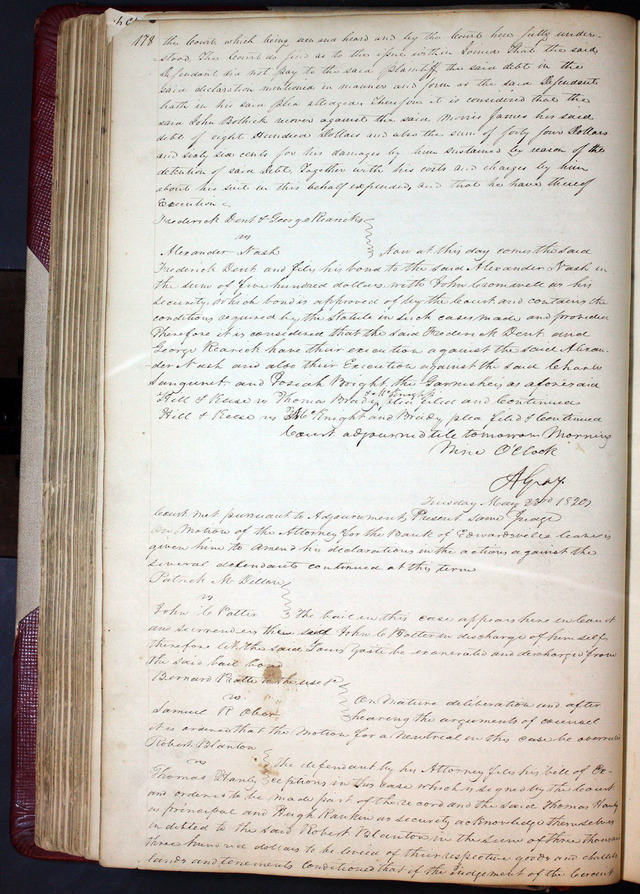 178 the Court which being seen and heard and by the Court here fully under-
stood. The Court do find as to the issue within Joined That the said
defendant did not pay to the said plaintiff the said debt in the
said declaration mentioned in manner and form as the said Defendant
hath in his said plea alledged. Therefore it is considered that the
said John Bollick recover against the said Morris James his said
debt of eight Hundred Dollars and also the sum of forty four Dollars
and sixty six cents for his damages by him sustained by reason of the
detention of said Debt, Together with his costs and charges by him
about his suit in this behalf expended, and that he have thereof
Execution
Frederick Dent & George Rearick
vs
Alexander Nash Now at this day comes the said
Frederick Dent and files his bond to the said Alexander Nash in
the sum of five hundred dollars with John Cromwell as his
security, which bond is approved of by the Court and contains the
conditions required by the Statute in such cases made and provided
Therefore it is considered that the said Frederick Dent and
George Rearick have their execution against the said Alexan-
der Nash and also their Execution against the said Charles
Sanguinet and Josiah Bright the Garnishees as aforesaid
Hill & Keese vs Thomas Brady & McKnight plea filed and Continued
Hill & Keese vs McKnight and Brady plea filed & Continued
Court adjourned till tomorrow Morning
Nine O'Clock
A Gray
Tuesday May 23rd 1820
Court met pursuant to Adjournment, Present same Judge
On Motion of the Attorney for the Bank of Edwardsville leave is
given him to amend his declarations in the actions against the
several defendants continued at this term
Patrick M Dillon
vs
John C Potter The bail in this case appears here in Court
and surrenders the said John C Potter in discharge of himself
therefore let the said be exonerated and discharged from
the said bail bond
Bernard Pratte to the use &c
vs
Samuel R Ober On Mature deliberation and after
hearing the arguments of counsel
it is ordered that the Motion for a Newtrial in this case be overruled
Robert Blanton
vs the defendant by his Attorney files his bill of Ex-
Thomas Hanly ceptions in this case which is signed by the Court
and ordered to be made part of the record and the said Thomas Hanly
as principal and Hugh Ranken as security acknowledge themselves
indebted to the said Robert Blanton in the sum of three thousand
three hundred dollars to be levied of their respective goods and chattels
lands and tenements conditioned that if the Judgement of the Circuit